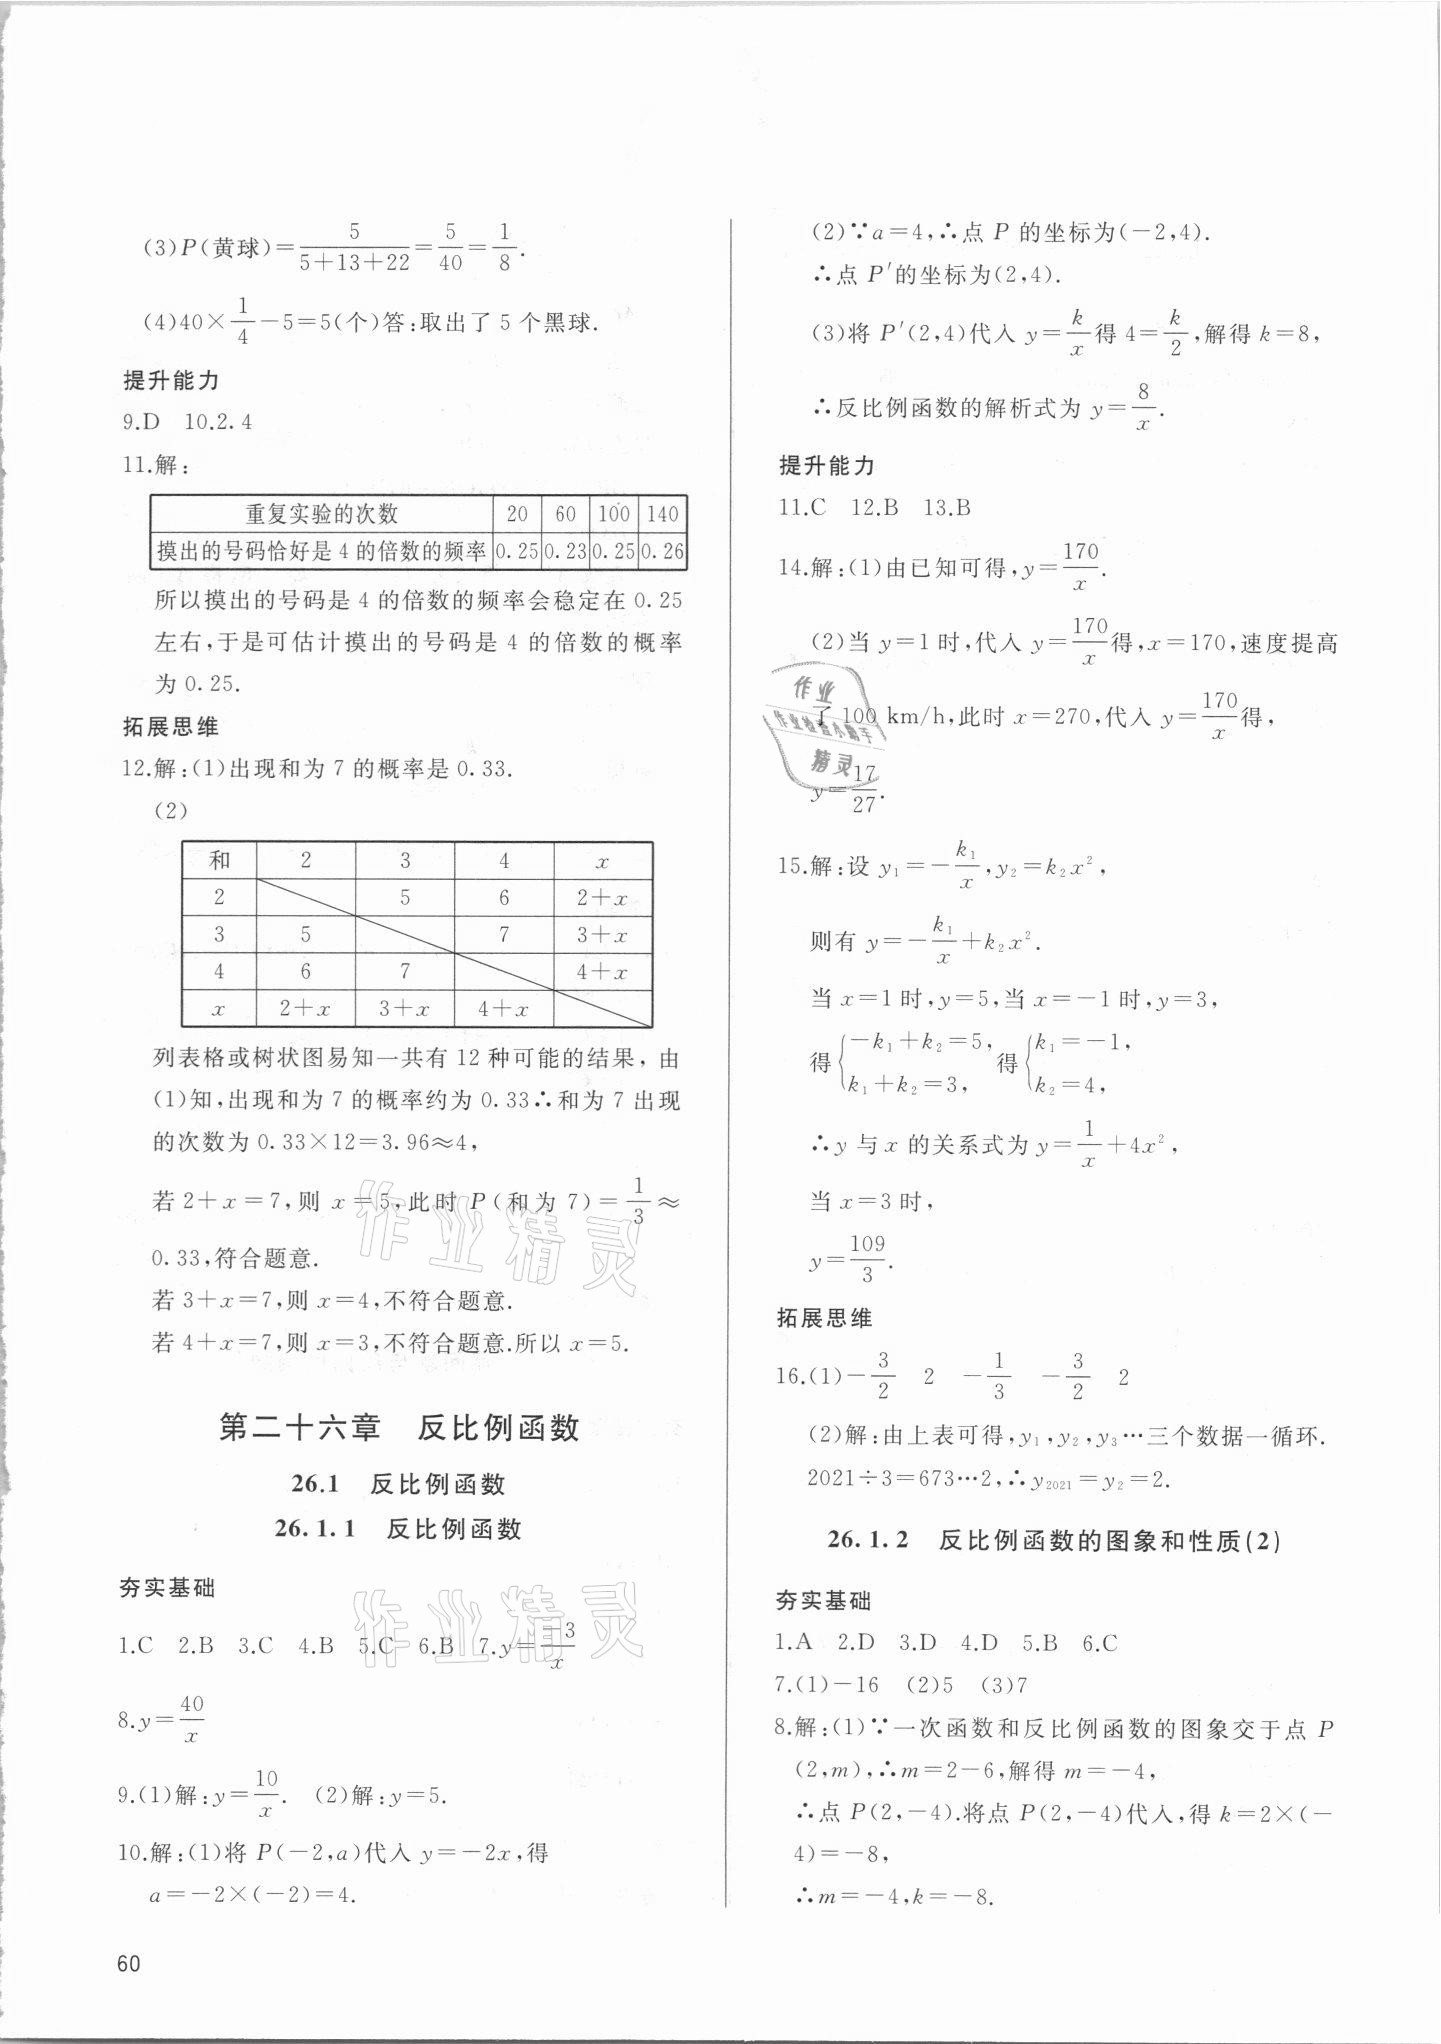 (3)P(黄球)=5/(5+13+22)=5/40=1/8.
(4)40×1/4-5=5(个)答:取出了 5 个黑球.
提升能力
9.D 10.2.4
11.解:
重复实验的次数 20 60 100 140
摸出的号码恰好是 4 的倍数的频率 0.25 0.23 0.25 0.26
所以摸出的号码是 4 的倍数的频率会稳定在 0.25
左右,于是可估计摸出的号码是 4 的倍数的概率
为 0.25.
拓展思维
12.解:(1)出现和为 7 的概率是 0.33.
(2)
和 2 3 4 x
2 5 6 2+x
3 5 7 3+x
4 6 7 4+x
x 2+x 3+x 4+x
列表格或树状图易知一共有 12 种可能的结果,由
(1)知,出现和为 7 的概率约为 0.33∴和为 7 出现
的次数为 0.33×12=3.96≈4,
若 2+x=7,则 x=5,此时 P(和为 7)=1/3≈
0.33,符合题意.
若 3+x=7,则 x=4,不符合题意.
若 4+x=7,则 x=3,不符合题意.所以 x=5.
第二十六章 反比例函数
26.1 反比例函数
26.1.1 反比例函数
夯实基础
1.C 2.B 3.C 4.B 5.C 6.B 7.y=-3/x
8.y=40/x
9.(1)解:y=10/x. (2)解:y=5.
10.解:(1)将 P(-2,a)代入 y=-2x,得
a=-2×(-2)=4.
60
(2)∵a=4,∴点 P 的坐标为(-2,4).
∴点 P′的坐标为(2,4).
(3)将 P′(2,4)代入 y=k/x得 4=k/2,解得 k=8,
∴反比例函数的解析式为 y=8/x.
提升能力
11.C 12.B 13.B
14.解:(1)由已知可得,y=170/x.
(2)当 y=1 时,代入 y=170/x得,x=170,速度提高
了 100 km/h,此时 x=270,代入 y=170/x得,
y=17/27.
15.解:设 y₁=-k₁/x,y₂=k₂x²,
则有 y=-k₁/x+k₂x².
当 x=1 时,y=5,当 x=-1 时,y=3,
得{-k₁+k₂=5, k₁+k₂=3, 得{k₁=-1, k₂=4,
∴y 与 x 的关系式为 y=1/x+4x²,
当 x=3 时,
y=109/3.
拓展思维
16.(1)-3/2 2 -1/3 -3/2 2
(2)解:由上表可得,y₁,y₂,y₃…三个数据一循环.
2021÷3=673…2,∴y₂₀₂₁=y₂=2.
26.1.2 反比例函数的图象和性质(2)
夯实基础
1.A 2.D 3.D 4.D 5.B 6.C
7.(1)-16 (2)5 (3)7
8.解:(1)∵一次函数和反比例函数的图象交于点 P
(2,m),∴m=2-6,解得 m=-4,
∴点 P(2,-4).将点 P(2,-4)代入,得 k=2×(-
4)=-8,
∴m=-4,k=-8.
作业
作业检查小助手
精灵
作业精灵
作业精灵